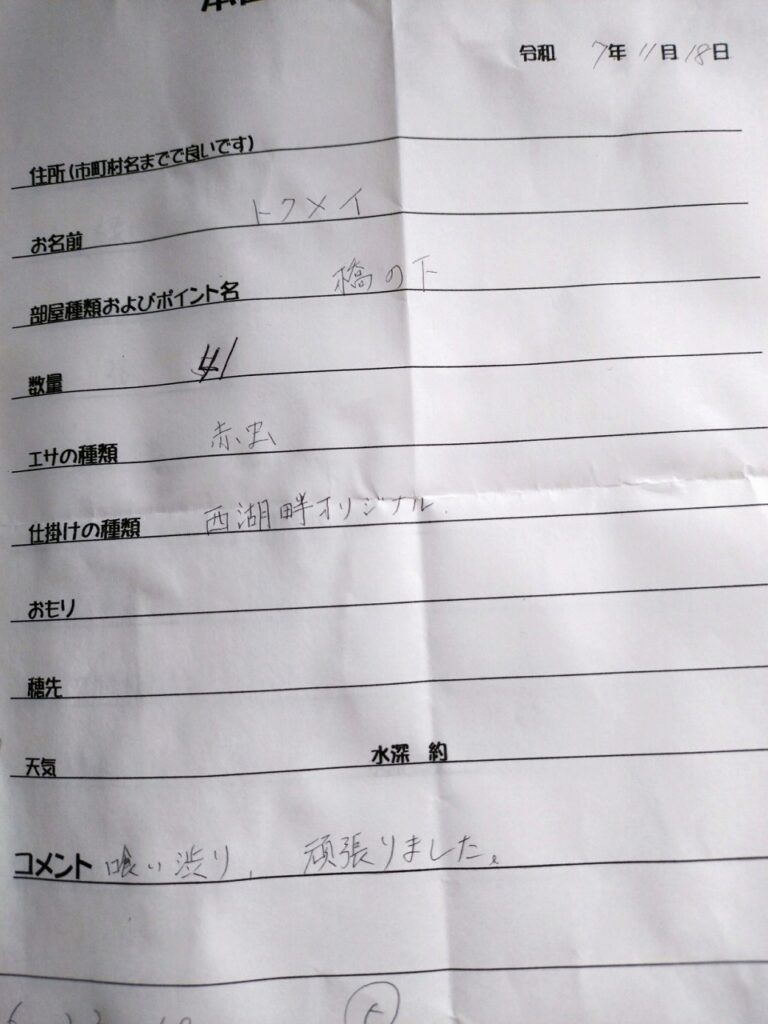 令和 7年 11月 18日
住所(市町村名までで良いです)
お名前 トクメイ
部屋種類およびポイント名 橋の下
数量 41
エサの種類 赤虫
仕掛けの種類 西湖畔オリジナル.
おもり
穂先
天気 水深 約
コメント 喰い渋り、頑張りました。